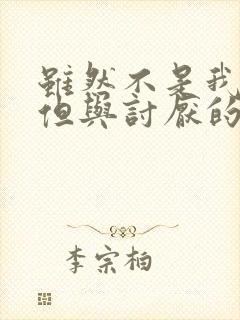 雖然不是我
但與討厭的
李宗柏